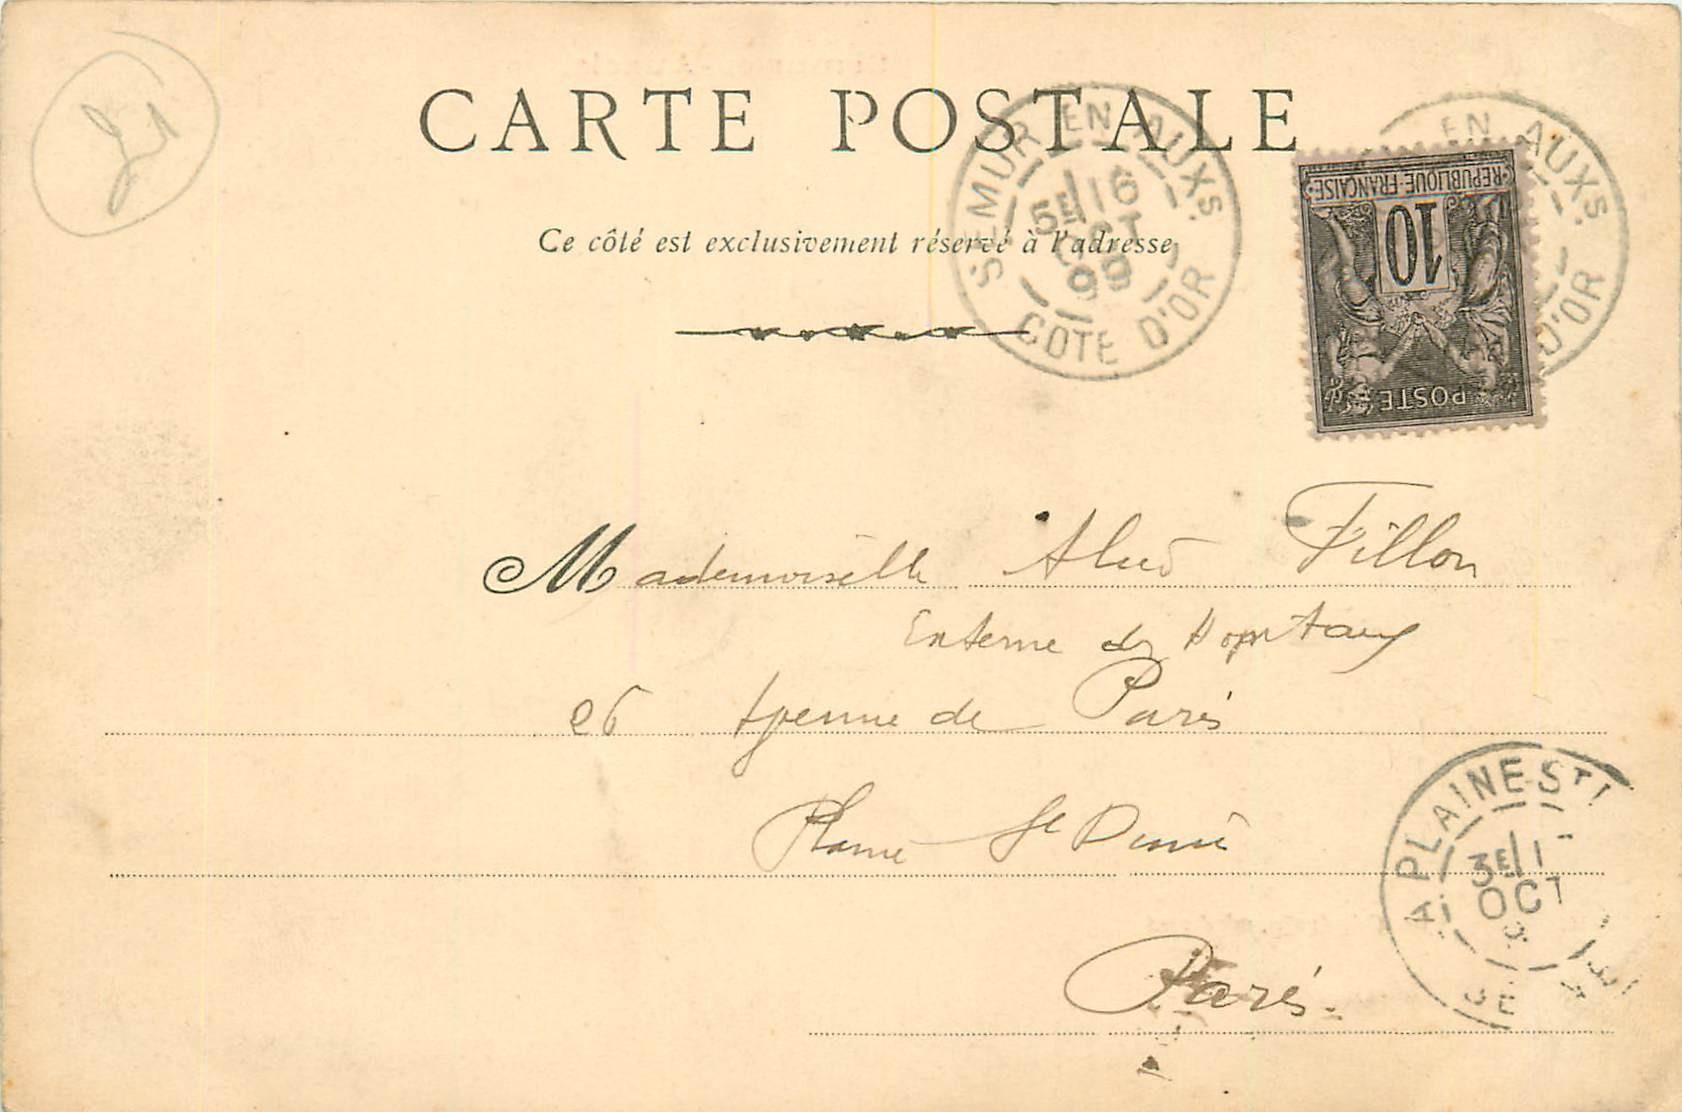 CARTE POSTALE
Ce côté est exclusivement réservé à l'adresse
SEMUR EN AUXS.
5E 16
OCT
99
COTE D'OR
EN AUXS.
D'OR
REPUBLIQUE FRANÇAISE
10
POSTE
Mademoiselle Fillon
Externe des Hopitaux
26 Avenue de Paris
Plaine St Denis
LA PLAINE ST
3E 1
OCT
SE
Paris.